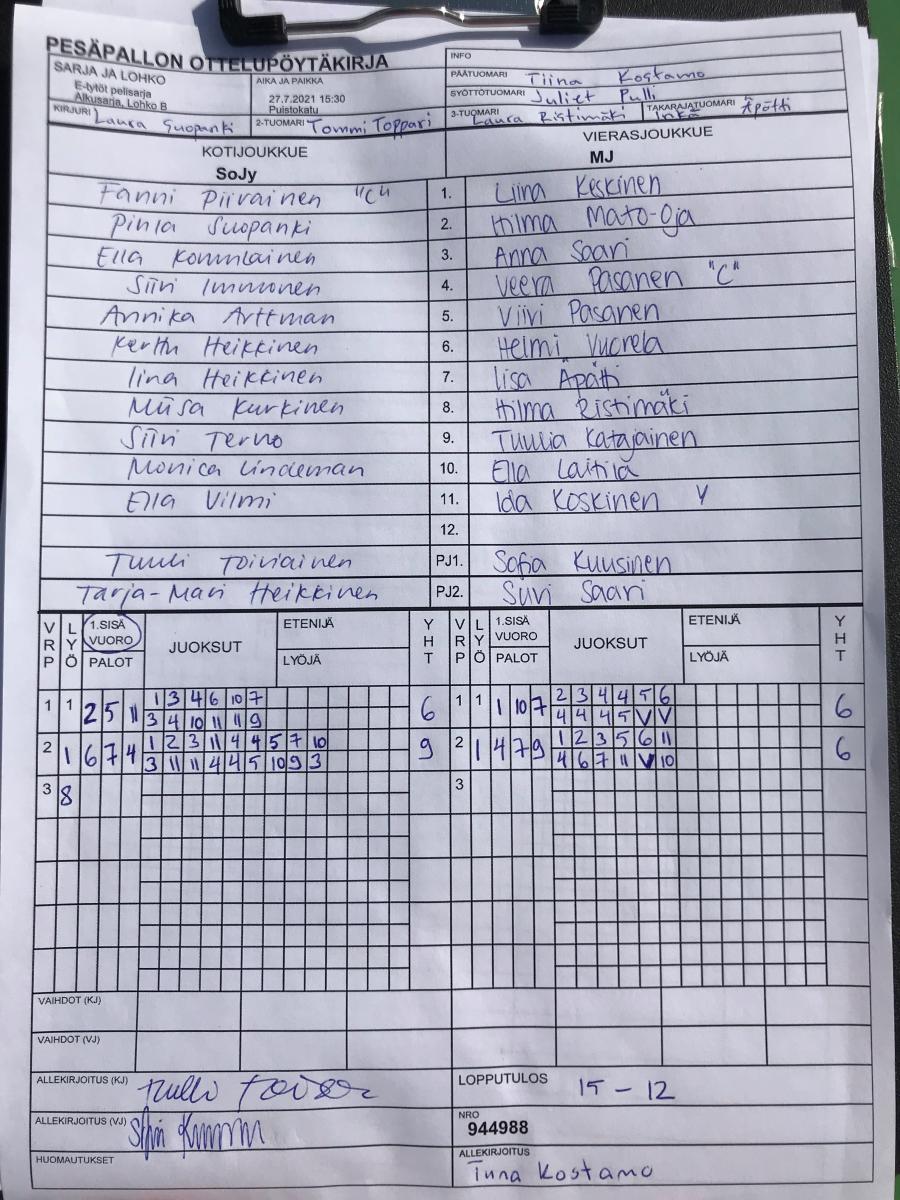 PESÄPALLON OTTELUPÖYTÄKIRJA
INFO
SARJA JA LOHKO
E-tytöt pelisarja
Alkusarja, Lohko B
AIKA JA PAIKKA
27.7.2021 15:30
Puistokatu
PÄÄTUOMARI Tiina Kostamo
SYÖTTÖTUOMARI Juliet Pulli
KIRJURI Laura Suopanki
2-TUOMARI Tommi Toppari
3-TUOMARI Laura Ristimäki
TAKARAJATUOMARI Inka Äpätti
KOTIJOUKKUE
SoJy
VIERASJOUKKUE
MJ
Fanni Piirainen "C" 1. Liina Keskinen
Pinla Suopanki 2. Hilma Mato-Oja
Ella 3. Anna Saari
Siiri Immonen 4. Veera Pasanen "C"
Annika Arttman 5. Viivi Pasanen
Kerttu Heikkinen 6. Helmi Vuorela
Iina Heikkinen 7. Iisa Äpätti
Miisa Kurkinen 8. Hilma Ristimäki
Siiri Tervo 9. Tuulia Katajainen
Monica Lindeman 10. Ella Laitila
Ella Vilmi 11. Ida Koskinen Y
12.
Tuuli Toiviainen PJ1. Sofia Kuusinen
Tarja-Mari Heikkinen PJ2. Suvi Saari
VRP LYÖ 1.SISÄ VUORO PALOT JUOKSUT ETENIJÄ LYÖJÄ YHT VRP LYÖ 1.SISÄ VUORO PALOT JUOKSUT ETENIJÄ LYÖJÄ YHT
1 1 2 5 11 1 3 4 6 10 7 6 1 1 1 10 7 2 3 4 4 5 6 6
3 4 10 11 11 9 4 4 4 5 V V
2 1 6 7 4 1 2 3 11 4 4 5 7 10 9 2 1 4 7 9 1 2 3 5 6 11 6
3 11 11 4 4 5 10 9 3 4 6 7 11 V 10
3 8 3
VAIHDOT (KJ)
VAIHDOT (VJ)
ALLEKIRJOITUS (KJ)
LOPPUTULOS 15 - 12
ALLEKIRJOITUS (VJ)
NRO
944988
HUOMAUTUKSET
ALLEKIRJOITUS
Tiina Kostamo